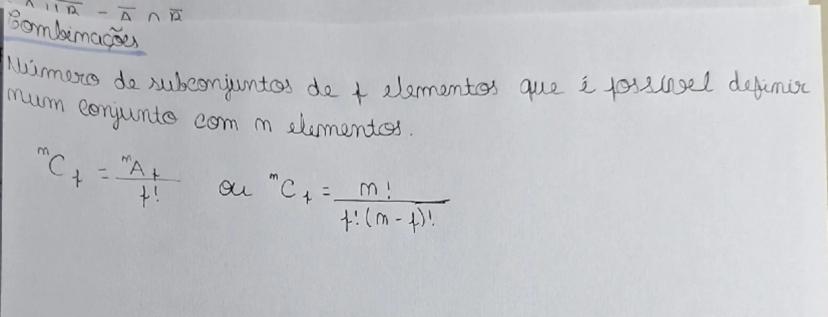 ∩ B̅ = A̅ ∩ B̅
Combinações
Número de subconjuntos de p elementos que é possível definir
num conjunto com n elementos.
ⁿCₚ = ⁿAₚ / p! ou ⁿCₚ = n! / p!(n - p)!